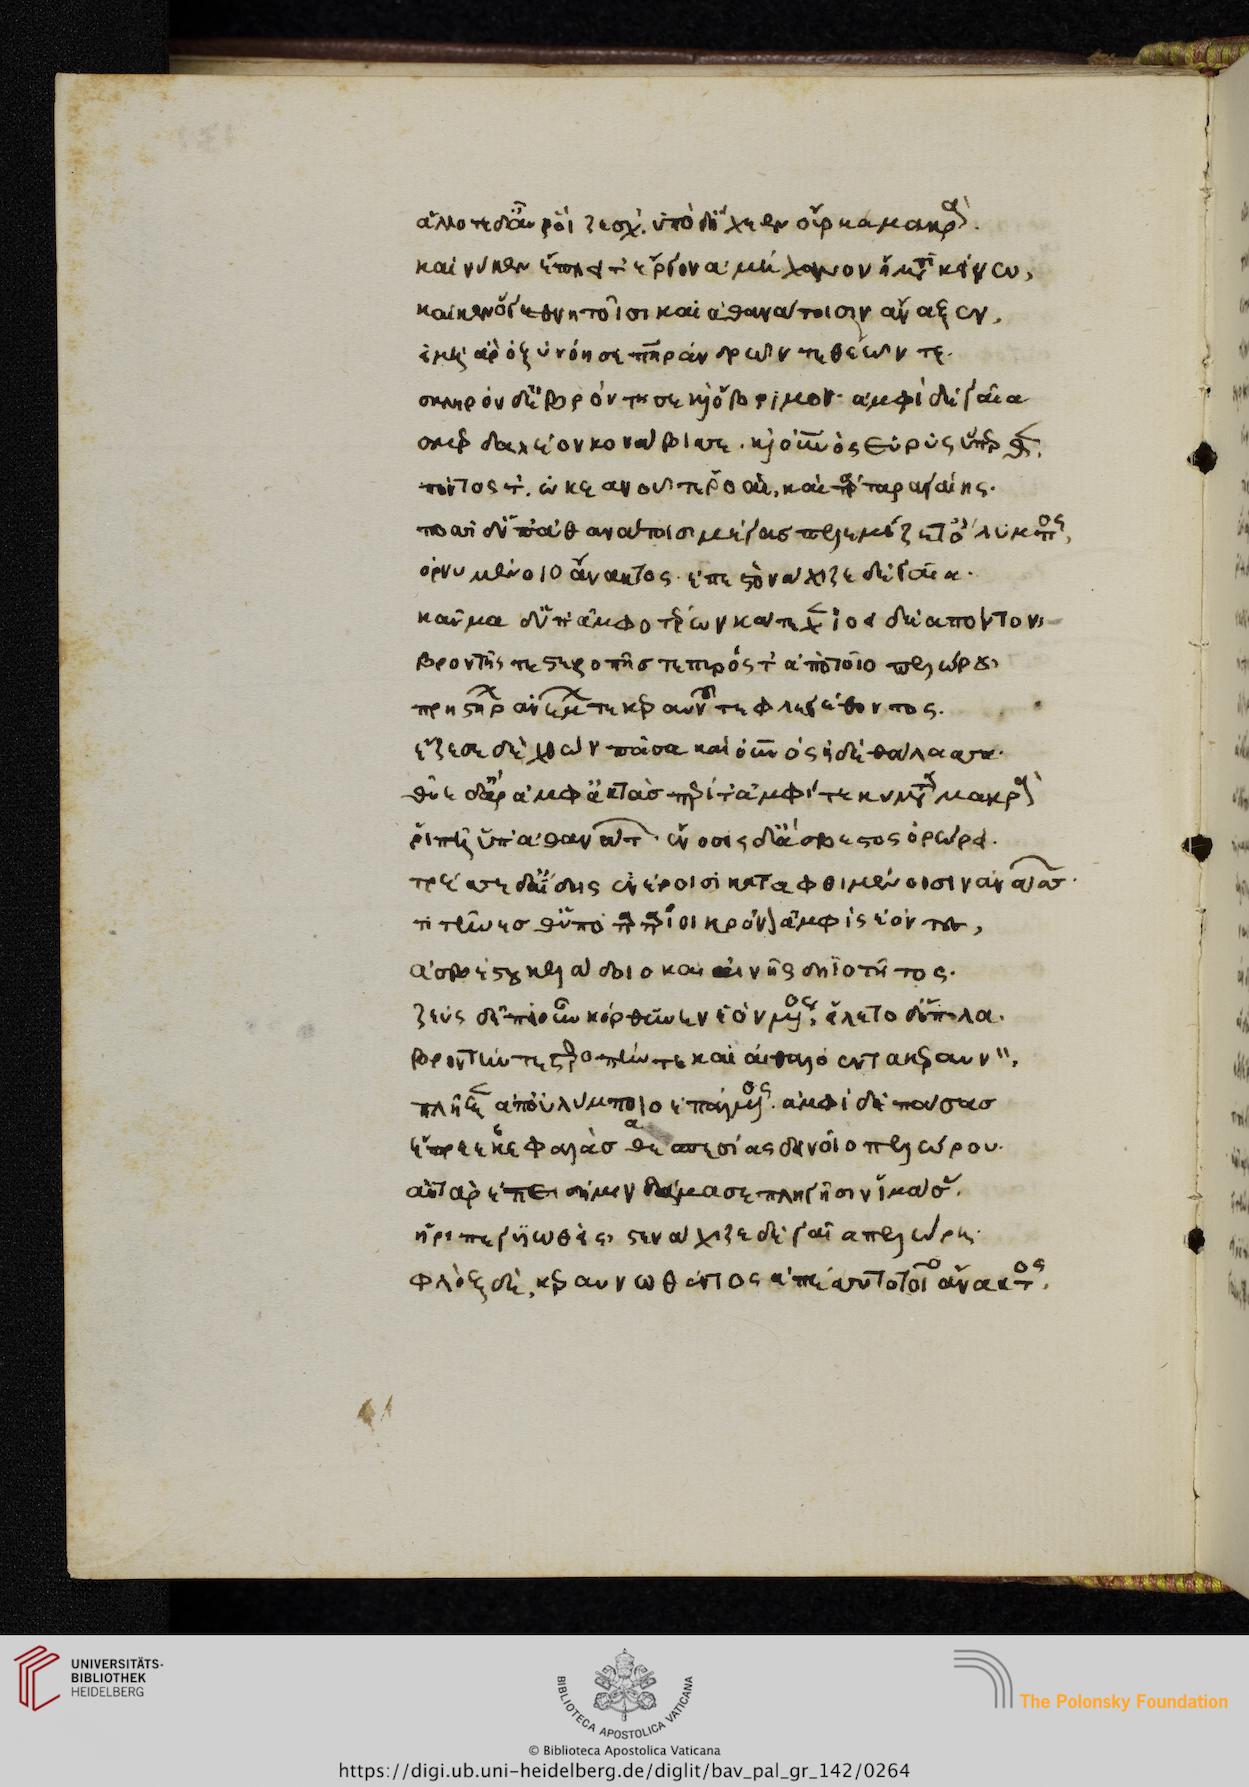 ἄλλοτε δ' ἂν ῥοίζεσχ' ὑπὸ δ' ἤχεεν οὔρεα μακρά.
καί νύ κεν ἔπλετ' ἔργον ἀμήχανον ἤματι κείνω,
καί κεν ὅγε θνητοῖσι καὶ ἀθανάτοισιν ἄναξεν,
εἰ μὴ ἄρ' ὀξὺ νόησε πατὴρ ἀνδρῶν τε θεῶν τε.
σκληρὸν δ' ἐβρόντησε καὶ ὄβριμον· ἀμφὶ δὲ γαῖα
σμερδαλέον κονάβισσε· καὶ οὐρανὸς εὐρὺς ὕπερθεν,
πόντος τ' ὠκεανοῦ τε ῥοαὶ, καὶ τάρταρα γαίης·
ποσὶ δ' ὕπ' ἀθανάτοισι μέγας πελεμίζετ' ὄλυμπος,
ὀρνυμένοιο ἄνακτος· ἐπεστονάχιζε δὲ γαῖα·
καῦμα δ' ὑπ' ἀμφοτέρων κάτεχ' ἰοειδέα πόντον,
βροντῆς τε στεροπῆς τε πυρός τ' ἀπὸ τοῖο πελώρου,
πρηστήρων ἀνέμων τε κεραυνοῦ τε φλεγέθοντος.
ἔζεσε δὲ χθὼν πᾶσα καὶ οὐρανὸς ἠδὲ θάλασσα·
θῦε δ' ἄρ' ἀμφ' ἀκτὰς περί τ' ἀμφί τε κύματα μακρά
ῥιπῇ ὕπ' ἀθανάτων· ἔνοσις δ' ἄσβεστος ὀρώρει.
τρέσσε δ' ἀΐδης ἐνέροισι καταφθιμένοισιν ἀνάσσων·
τιτῆνές θ' ὑπο ταρτάριοι κρόνον ἀμφὶς ἐόντες,
ἀσβέστου κελάδοιο καὶ αἰνῆς δηϊοτῆτος.
ζεὺς δ' ἐπεὶ οὖν κόρθυνεν ἑὸν μένος, εἵλετο δ' ὅπλα·
βροντήν τε στεροπήν τε καὶ αἰθαλόεντα κεραυνόν,
πλῆξεν ἀπ' οὐλύμποιο ἐπάλμενος· ἀμφὶ δὲ πάσας
ἔπρεσε κεφαλὰς θεσπεσίας δεινοῖο πελώρου·
αὐτὰρ ἐπεὶ δή μιν δάμασε πληγῇσιν ἱμάσσας,
ἤριπε γυιωθείς, στενάχιζε δὲ γαῖα πελώρη·
φλὸξ δὲ κεραυνωθέντος ἀπέσσυτο τοῖο ἄνακτος,
UNIVERSITÄTS-
BIBLIOTHEK
HEIDELBERG
BIBLIOTECA APOSTOLICA VATICANA
The Polonsky Foundation
© Biblioteca Apostolica Vaticana
https://digi.ub.uni-heidelberg.de/diglit/bav_pal_gr_142/0264